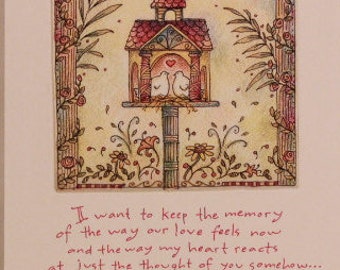 I want to keep the memory
of the way our love feels now
and the way my heart reacts
at just the thought of you somehow...